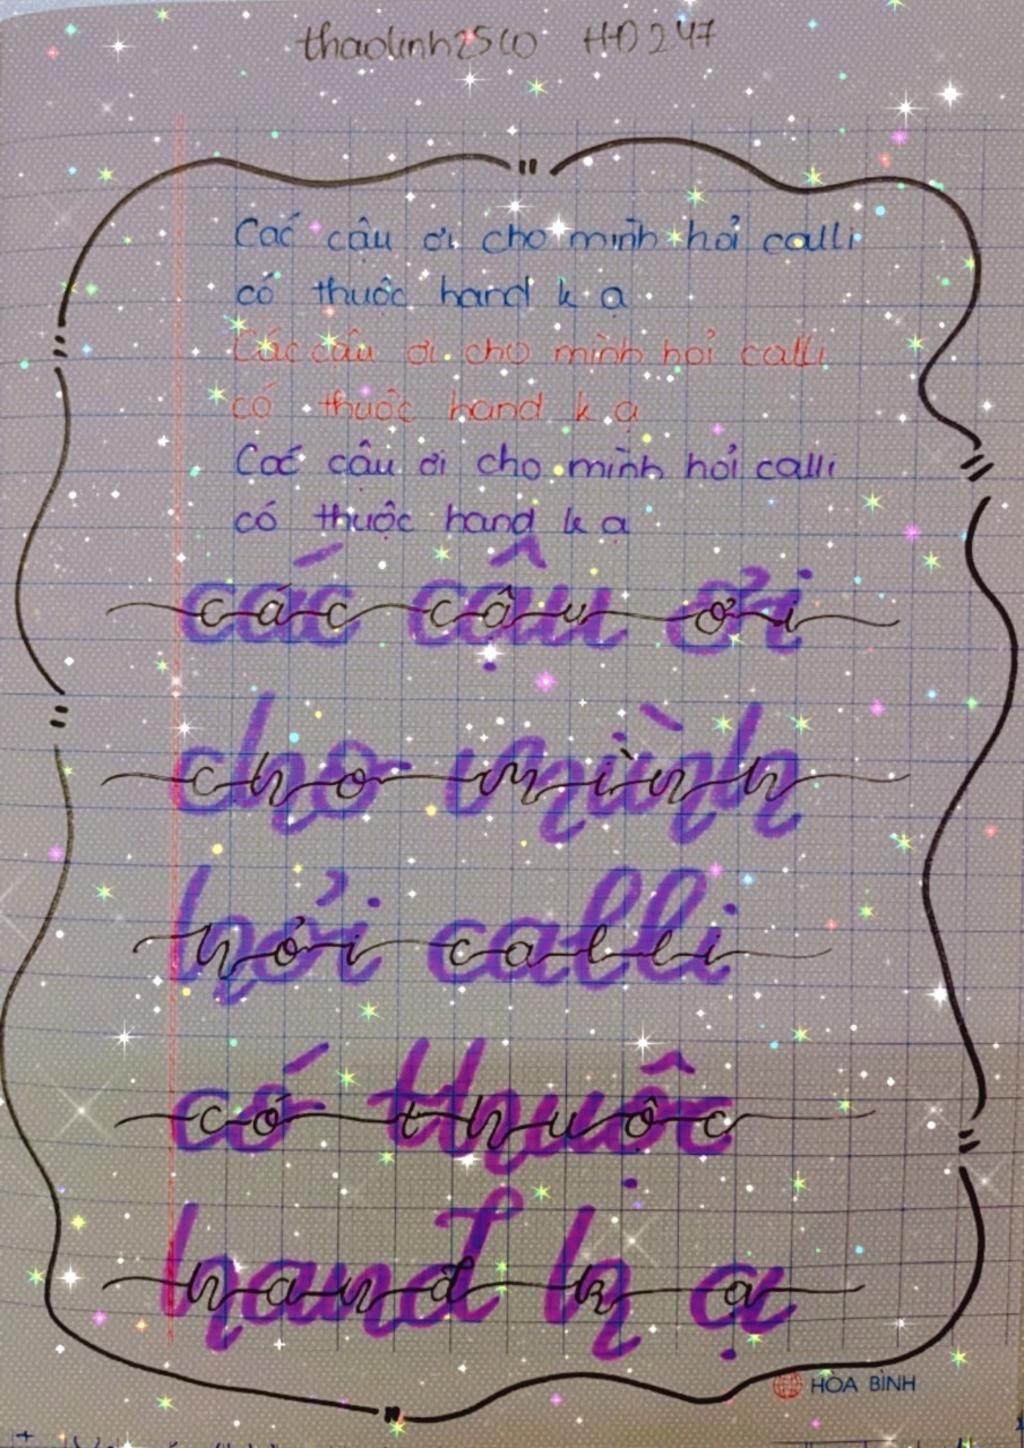 thaolinh25(1) HD247
Các cậu ơi cho mình hỏi calli
có thuộc hand k ạ
Các cậu ơi cho mình hỏi calli
có thuộc hand k ạ
Các cậu ơi cho mình hỏi calli
có thuộc hand k ạ
các cậu ơi
cho mình
hỏi calli
có thuộc
hand k ạ
HÒA BÌNH